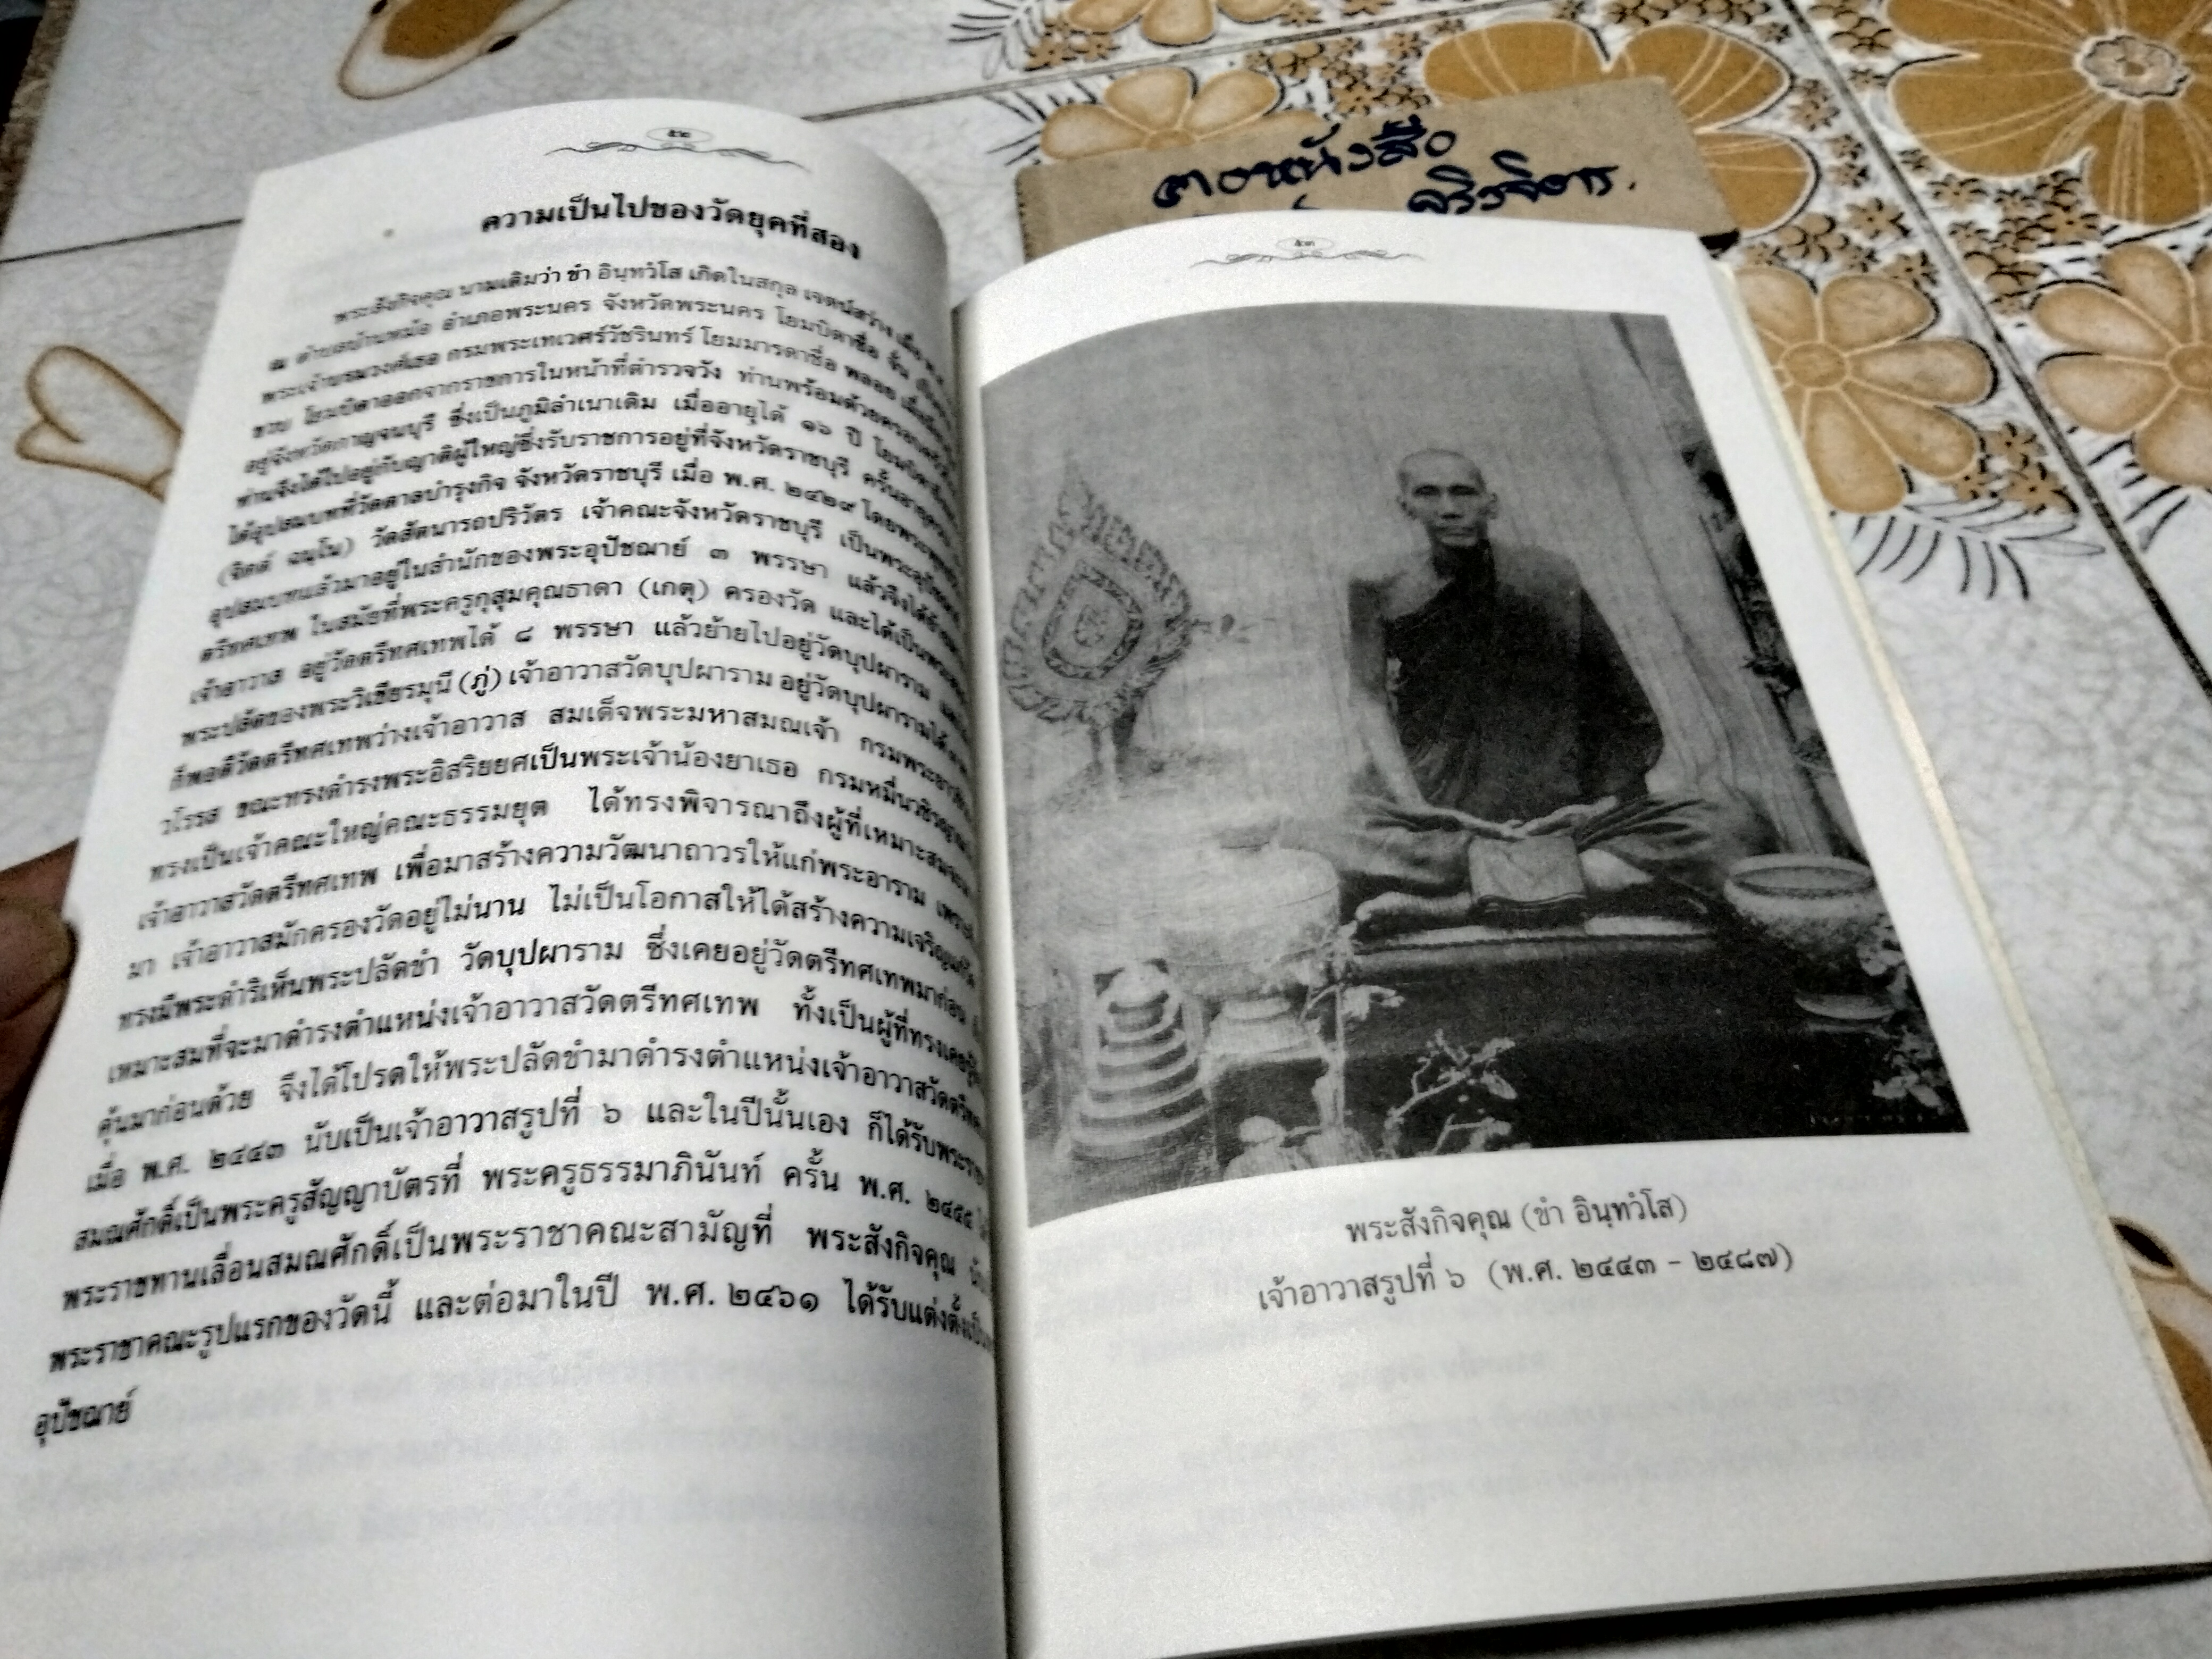 ๕๒
ความเป็นไปของวัดยุคที่สอง
พระสังกิจคุณ นามเดิมว่า ขำ อินฺทวํโส เกิดในสกุล เจตน์สว่าง เมื่อ
ณ ตำบลบ้านหม้อ อำเภอพระนคร จังหวัดพระนคร โยมบิดาชื่อ จั้น
พระเจ้าบรมวงศ์เธอ กรมพระเทเวศร์วัชรินทร์ โยมมารดาชื่อ พลอย
ขวบ โยมบิดาออกจากราชการในหน้าที่ตำรวจวัง ท่านพร้อมด้วยครอบครัว
อยู่จังหวัดกาญจนบุรี ซึ่งเป็นภูมิลำเนาเดิม เมื่ออายุได้ ๑๖ ปี
ท่านจึงได้ไปอยู่กับญาติผู้ใหญ่ซึ่งรับราชการอยู่ที่จังหวัดราชบุรี
ได้อุปสมบทที่วัดตาลบำรุงกิจ จังหวัดราชบุรี เมื่อ พ.ศ. ๒๔๒๙
(จิตต์ ฉนฺโน) วัดสัตนารถปริวัตร เจ้าคณะจังหวัดราชบุรี เป็นพระอุปัชฌาย์
อุปสมบทแล้วมาอยู่ในสำนักของพระอุปัชฌาย์ ๓ พรรษา แล้วจึงได้
ตรีทศเทพ ในสมัยที่พระครูกุสุมคุณธาดา (เกตุ) ครองวัด และได้เป็น
เจ้าอาวาส อยู่วัดตรีทศเทพได้ ๘ พรรษา แล้วย้ายไปอยู่วัดบุปผาราม
พระปลัดของพระวิเชียรมุนี (ภู่) เจ้าอาวาสวัดบุปผาราม อยู่วัดบุปผารามได้
ก็พอดีวัดตรีทศเทพว่างเจ้าอาวาส สมเด็จพระมหาสมณเจ้า
วโรรส ขณะทรงดำรงพระอิสริยยศเป็นพระเจ้าน้องยาเธอ กรมหมื่น
ทรงเป็นเจ้าคณะใหญ่คณะธรรมยุต ได้ทรงพิจารณาถึงผู้ที่เหมาะสม
เจ้าอาวาสวัดตรีทศเทพ เพื่อมาสร้างความวัฒนาถาวรให้แก่พระอาราม
มา เจ้าอาวาสมักครองวัดอยู่ไม่นาน ไม่เป็นโอกาสให้ได้สร้างความเจริญ
ทรงมีพระดำริเห็นพระปลัดขำ วัดบุปผาราม ซึ่งเคยอยู่วัดตรีทศเทพมาก่อน
เหมาะสมที่จะมาดำรงตำแหน่งเจ้าอาวาสวัดตรีทศเทพ ทั้งเป็นผู้ที่ทรงเคย
คุ้นมาก่อนด้วย จึงได้โปรดให้พระปลัดขำมาดำรงตำแหน่งเจ้าอาวาส
เมื่อ พ.ศ. ๒๔๔๓ นับเป็นเจ้าอาวาสรูปที่ ๖ และในปีนั้นเอง ก็ได้รับ
สมณศักดิ์เป็นพระครูสัญญาบัตรที่ พระครูธรรมาภินันท์ ครั้น พ.ศ. ๒๔๕๕
พระราชทานเลื่อนสมณศักดิ์เป็นพระราชาคณะสามัญที่ พระสังกิจคุณ
พระราชาคณะรูปแรกของวัดนี้ และต่อมาในปี พ.ศ. ๒๔๖๑ ได้รับแต่งตั้ง
อุปัชฌาย์
๕๓
พระสังกิจคุณ (ขำ อินฺทวํโส)
เจ้าอาวาสรูปที่ ๖ (พ.ศ. ๒๔๔๓ - ๒๔๘๗)